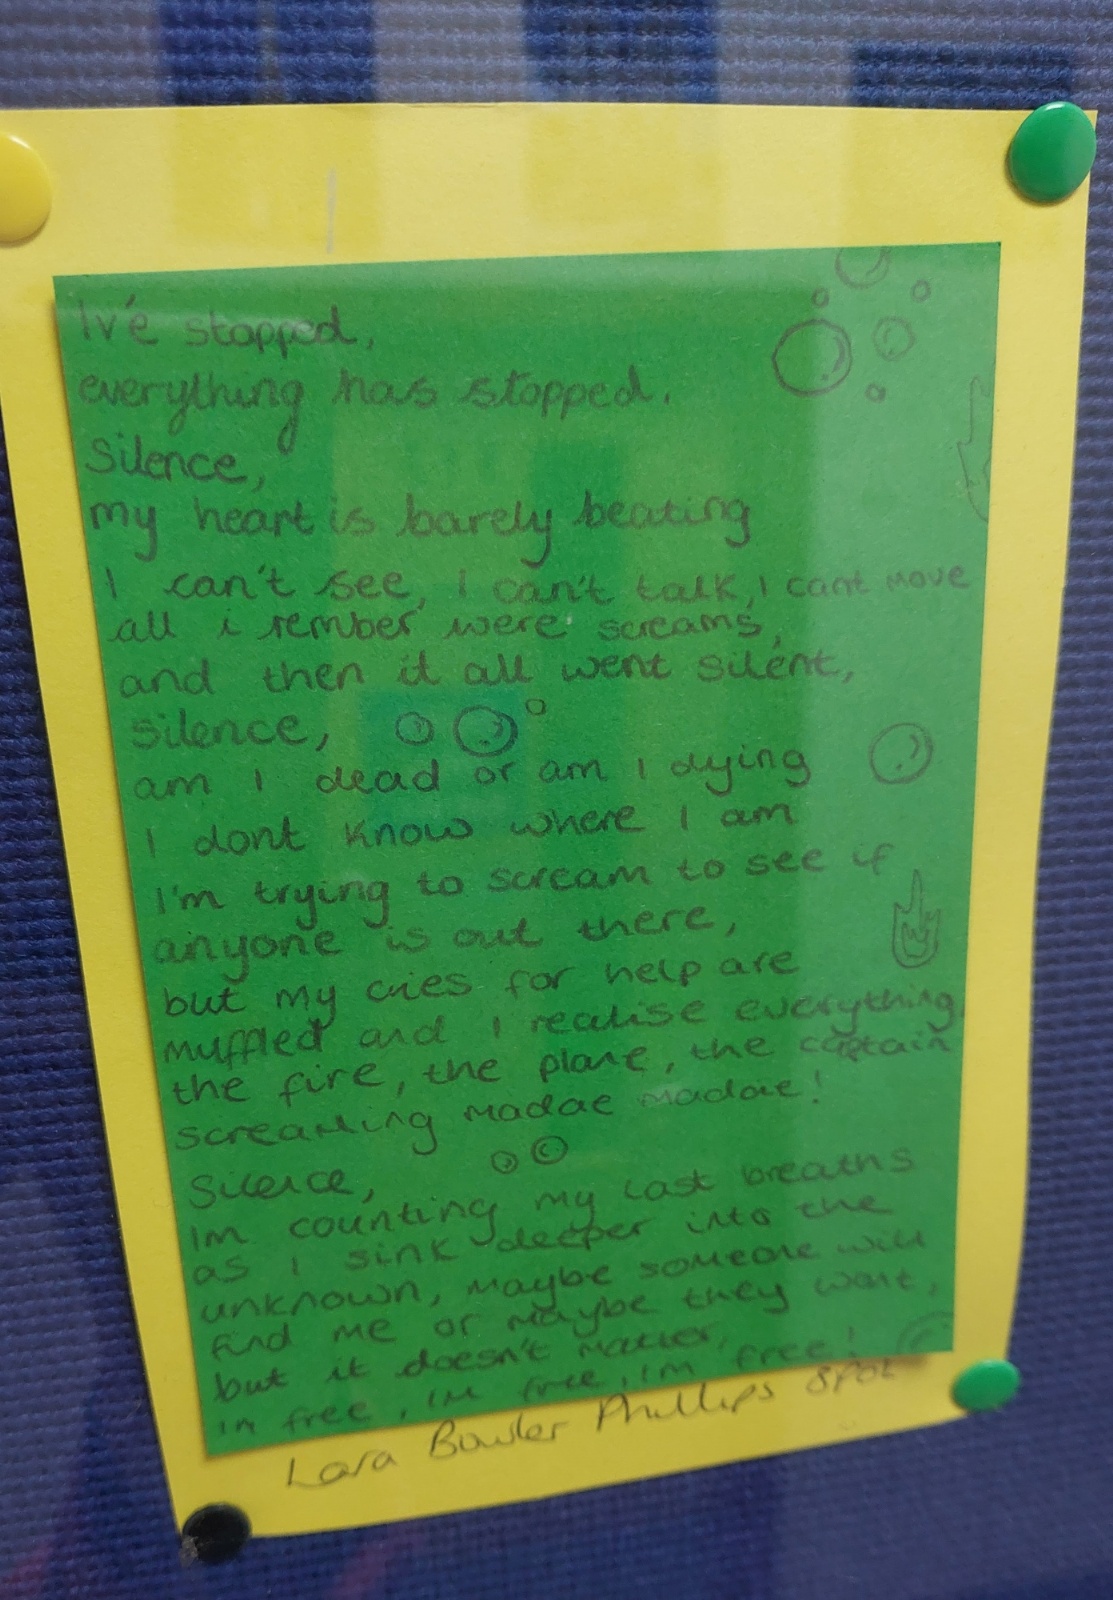 Iv'e stopped,
everything has stopped.
Silence,
my heart is barely beating
I can't see, I can't talk, I cant move
all i rember were screams,
and then it all went silent,
silence,
am I dead or am I dying
I dont know where I am
I'm trying to scream to see if
anyone is out there,
but my cries for help are
muffled and I realise everything,
the fire, the plane, the captain
screaming madae madae!
Silence,
Im counting my last breaths
as I sink deeper into the
unknown, maybe someone will
find me or maybe they wont,
but it doesn't matter,
im free, im free, im free!
Lara Bowler Phillips